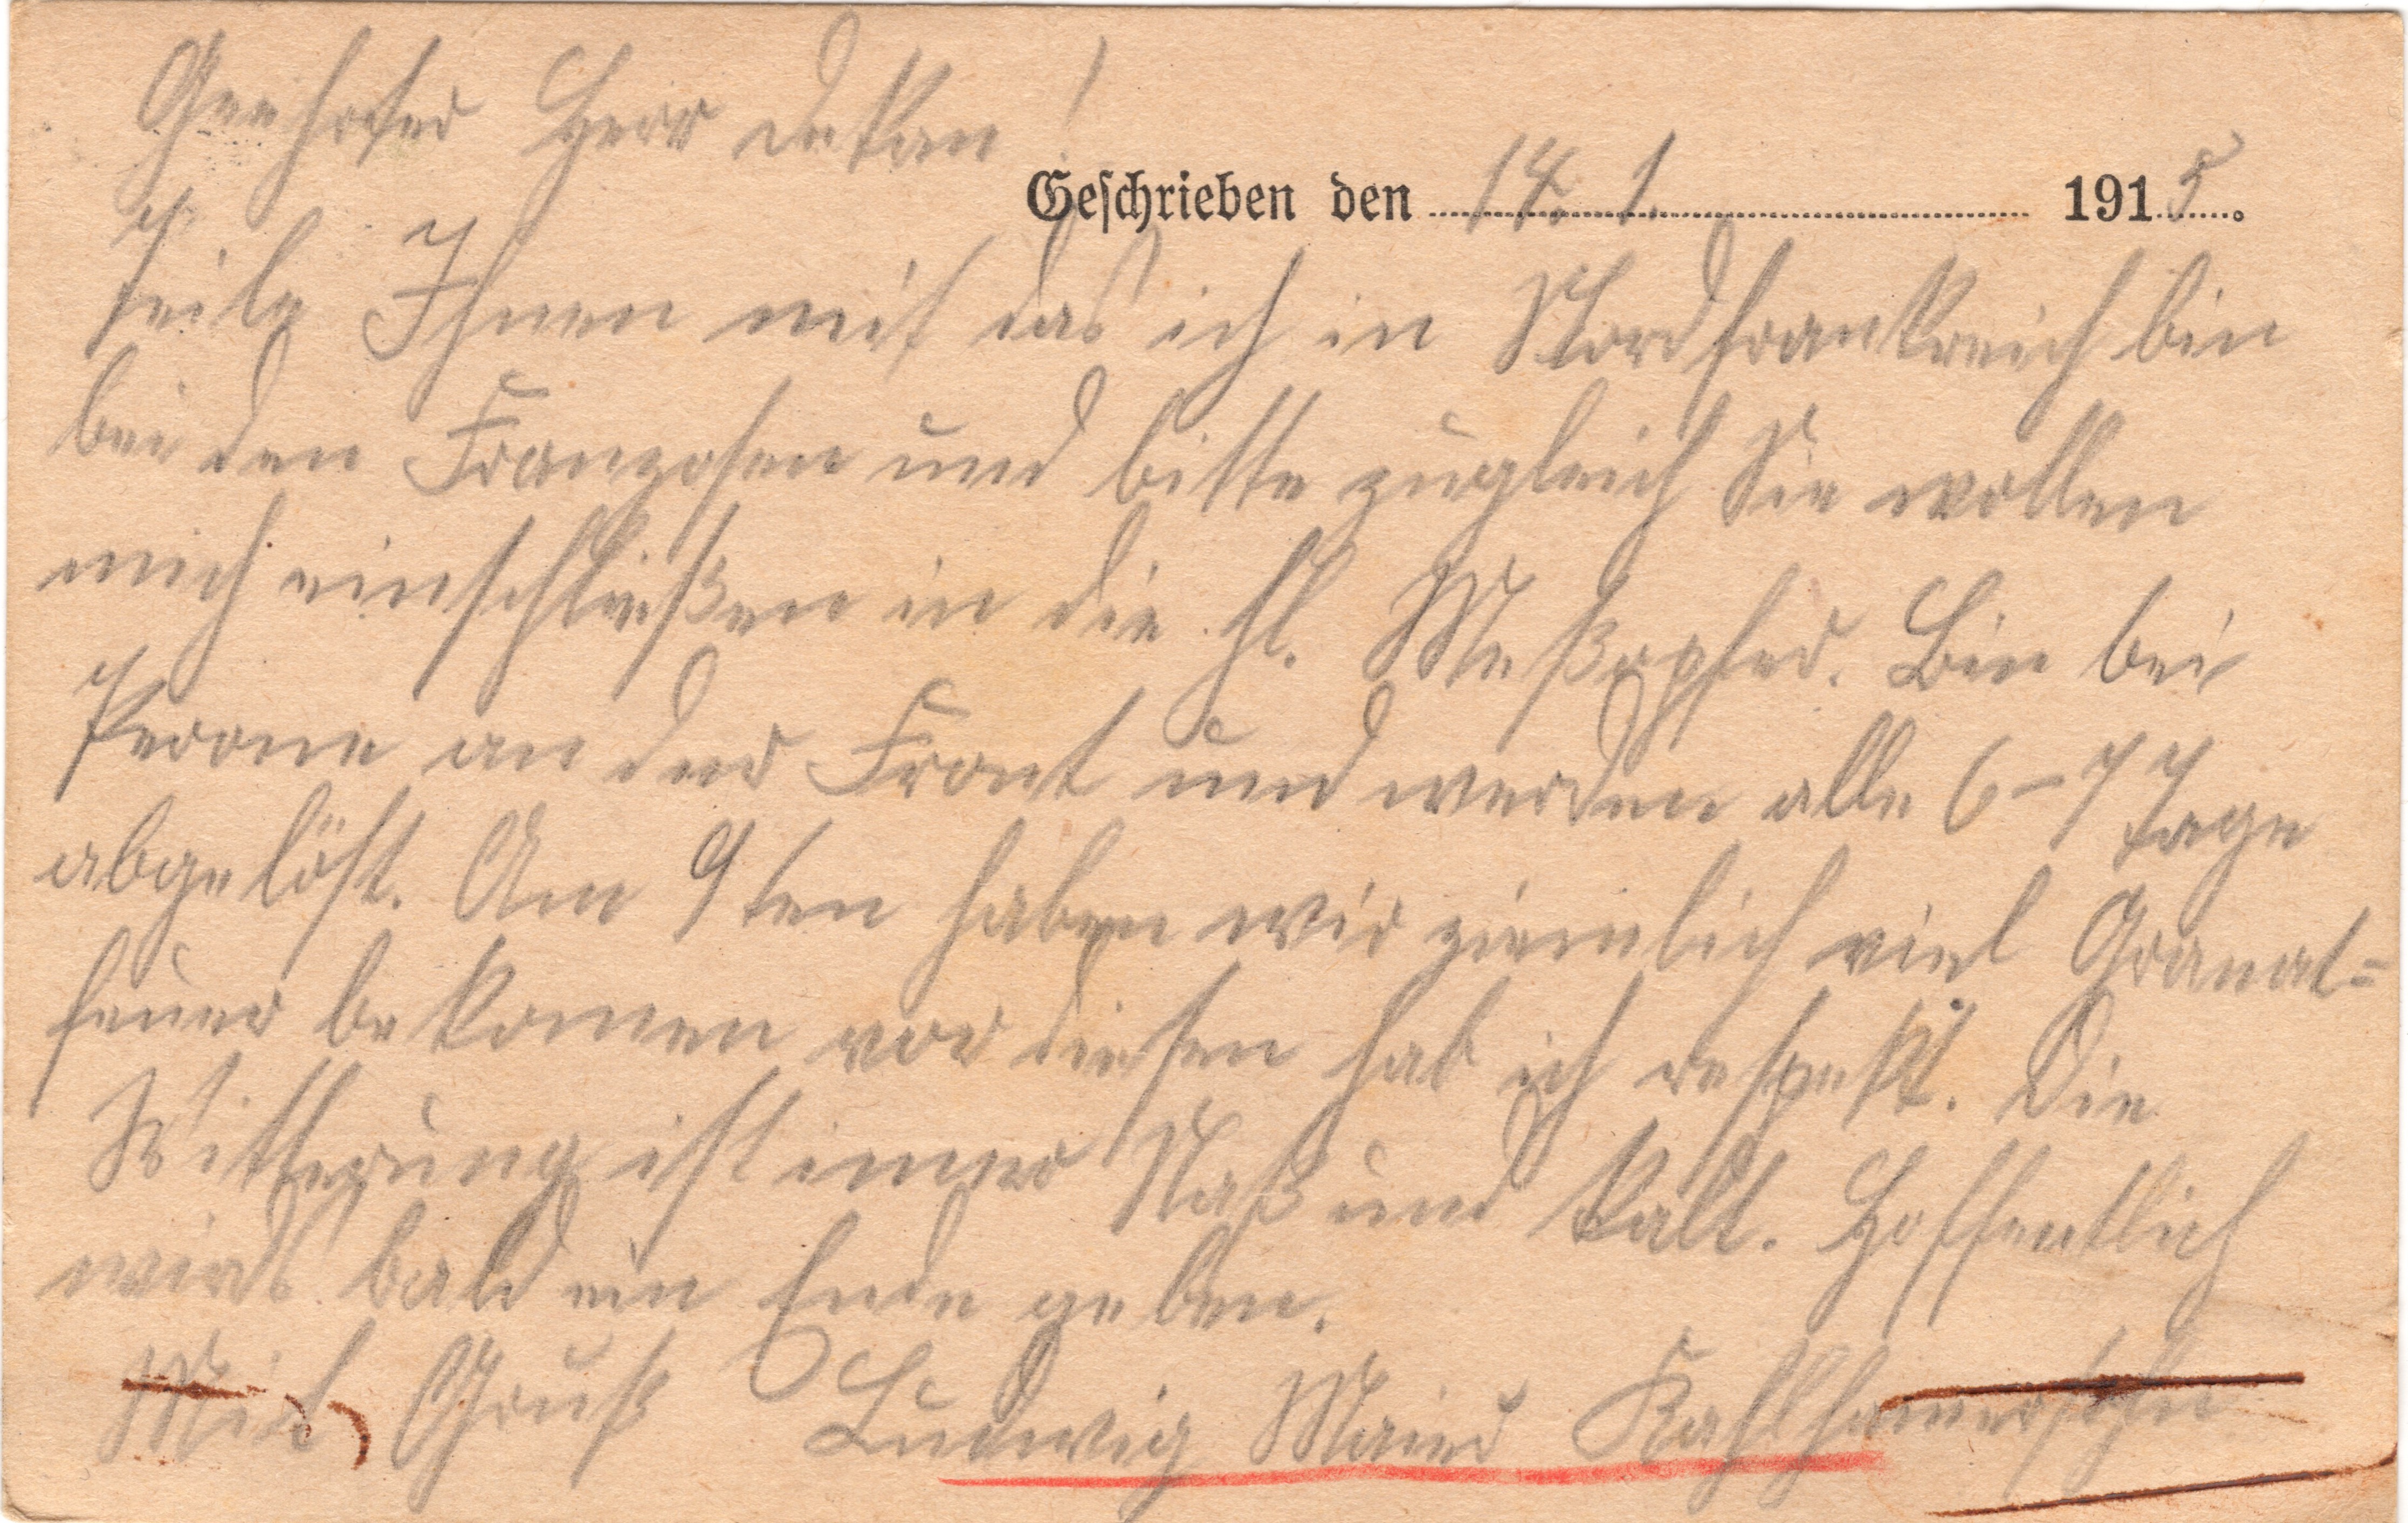 Geehrter Herr Dekan!
Geschrieben den 14. 1. 1915.
Teile Ihnen mit das ich in Nordfrankreich bin
bei den Franzosen und bitte zugleich Sie wollen
mich einschließen in die hl. Meßopfer. Bin bei
Perone an der Front und werden alle 6–7 Tage
abgelöst. Am 9ten haben wir ziemlich viel Granat=
feuer bekomen vor diesen hab ich respekt. Die
Witterung ist imer Naß und kalt. Hoffentlich
wirds bald ein Ende geben.
Mit Gruß Ludwig Maier